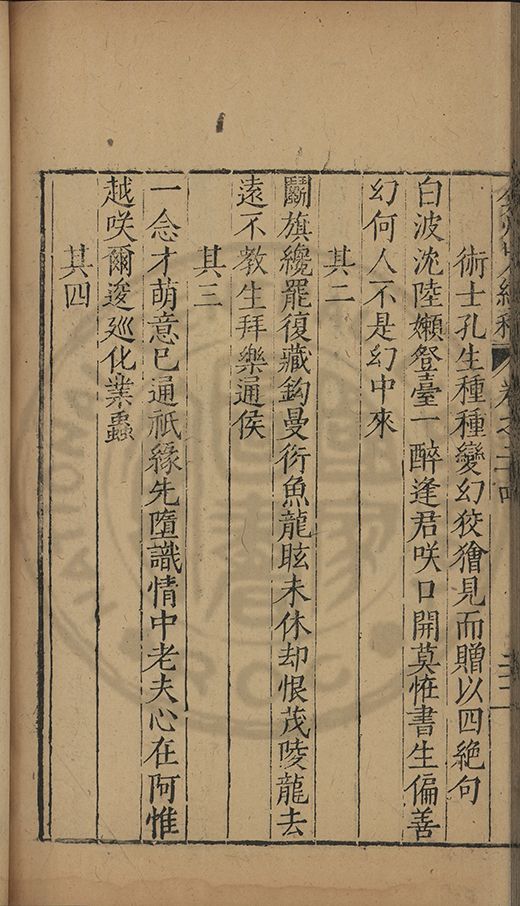 術士孔生種種變幻狡獪見而贈以四絶句
白波沈陸嬾登臺一醉逢君咲口開莫恠書生偏善
幻何人不是幻中來
其二
鬭旗纔罷復藏鈎曼衍魚龍眩未休却恨茂陵龍去
遠不教生拜樂通侯
其三
一念才萌意已通祇緣先墮識情中老夫心在阿惟
越咲爾逡廵化業蟲
其四